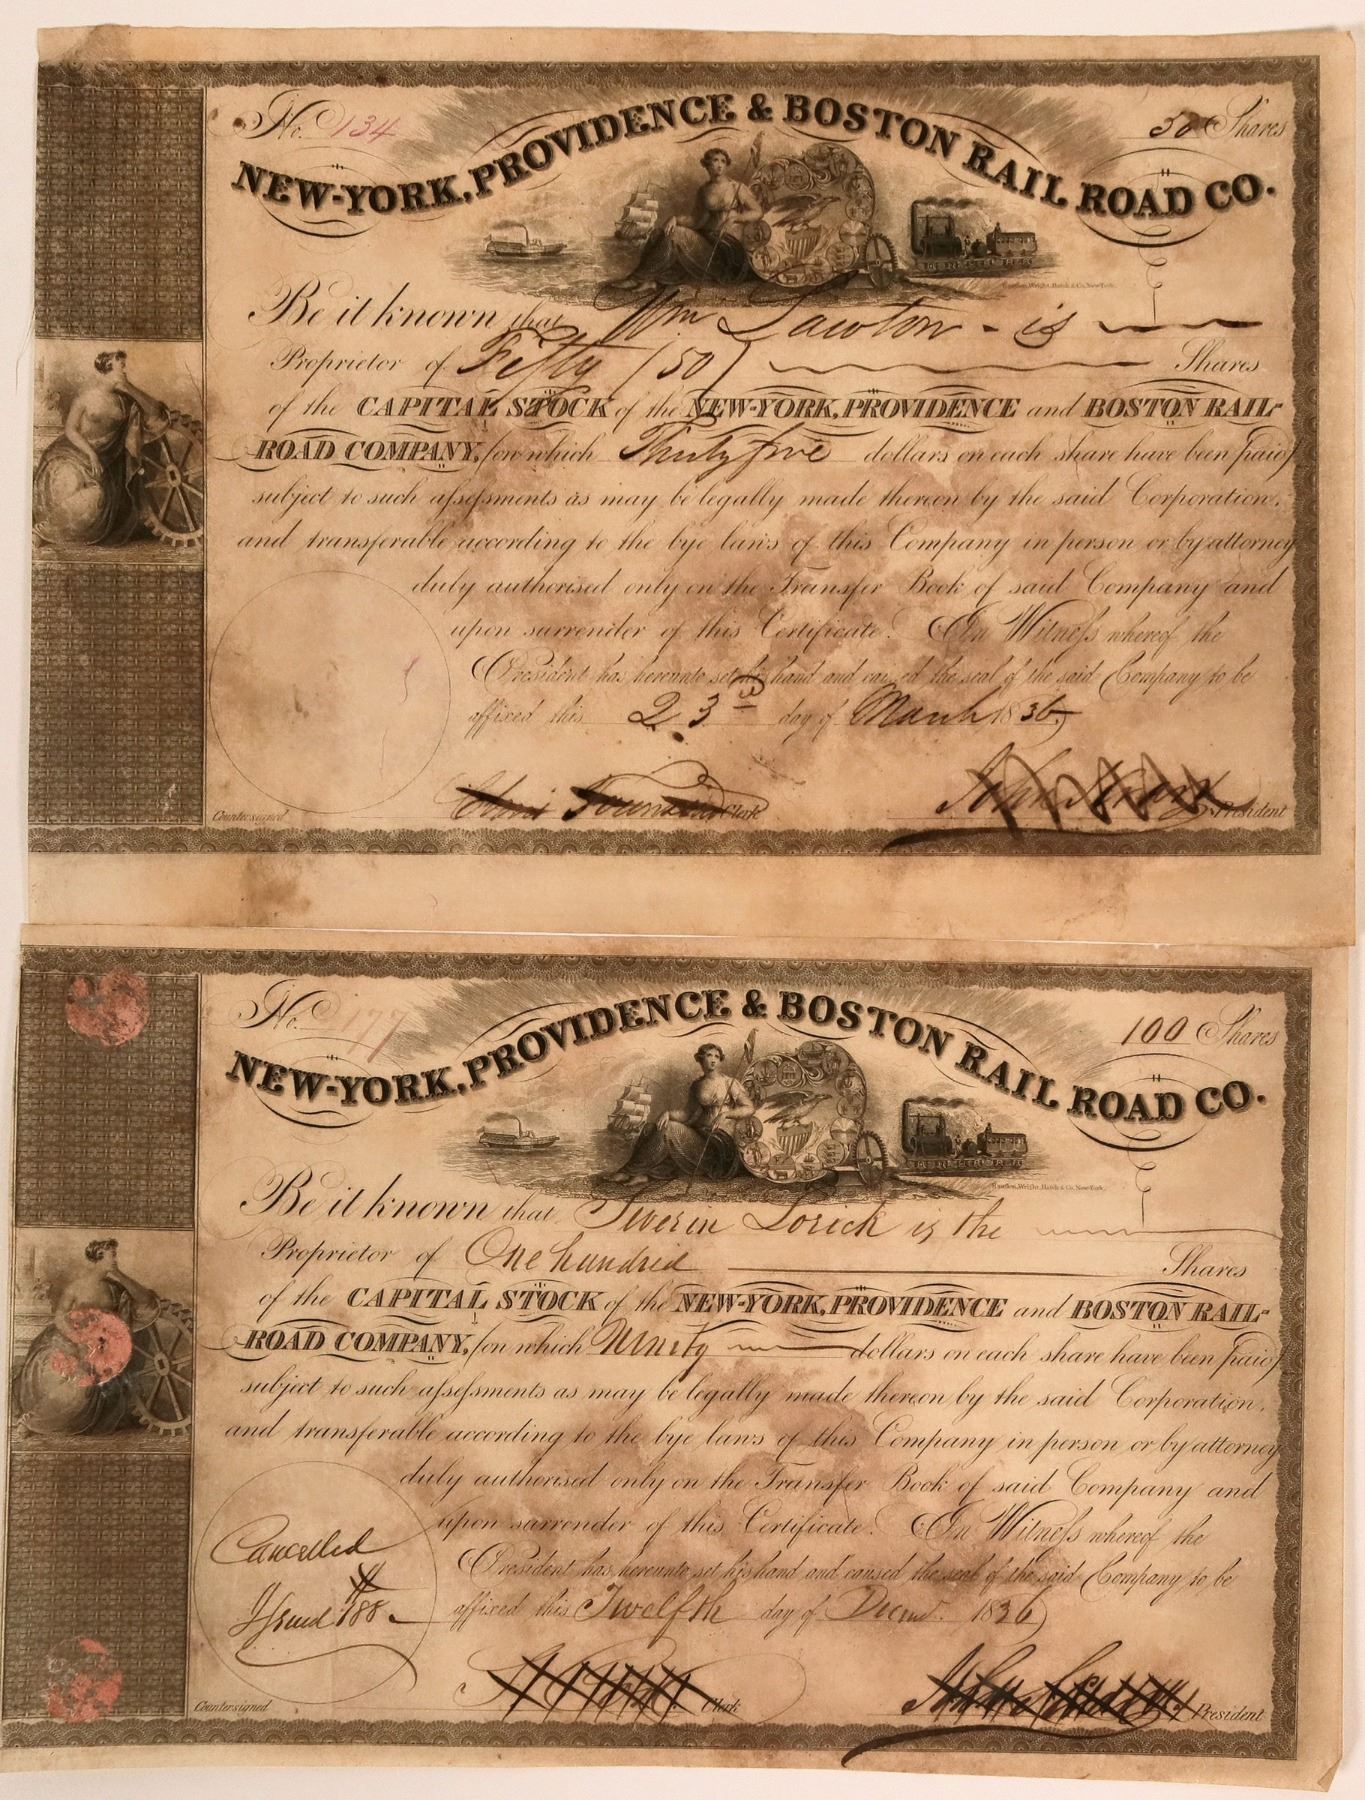 No. 134
50 Shares
NEW-YORK, PROVIDENCE & BOSTON RAIL ROAD CO.
Rawdon, Wright, Hatch & Co. New-York.
Be it known that Wm Lawton - is
Proprietor of Fifty (50) Shares
of the CAPITAL STOCK of the NEW-YORK, PROVIDENCE and BOSTON RAIL-
ROAD COMPANY, (on which Thirty five dollars on each share have been paid)
subject to such assessments as may be legally made thereon by the said Corporation,
and transferable according to the bye laws of this Company in person or by attorney
duly authorised only on the Transfer Book of said Company and
upon surrender of this Certificate. In Witness whereof the
President has hereunto set his hand and caused the seal of the said Company to be
affixed this 23rd day of March 1836
Countersigned Clerk President
No. 177
100 Shares
NEW-YORK, PROVIDENCE & BOSTON RAIL ROAD CO.
Rawdon, Wright, Hatch & Co. New-York.
Be it known that Lorick is the
Proprietor of One hundred Shares
of the CAPITAL STOCK of the NEW-YORK, PROVIDENCE and BOSTON RAIL-
ROAD COMPANY, (on which Ninety dollars on each share have been paid)
subject to such assessments as may be legally made thereon by the said Corporation,
and transferable according to the bye laws of this Company in person or by attorney
duly authorised only on the Transfer Book of said Company and
upon surrender of this Certificate. In Witness whereof the
President has hereunto set his hand and caused the seal of the said Company to be
affixed this Twelfth day of Decm. 1836
Cancelled
Issued 188
Countersigned Clerk President